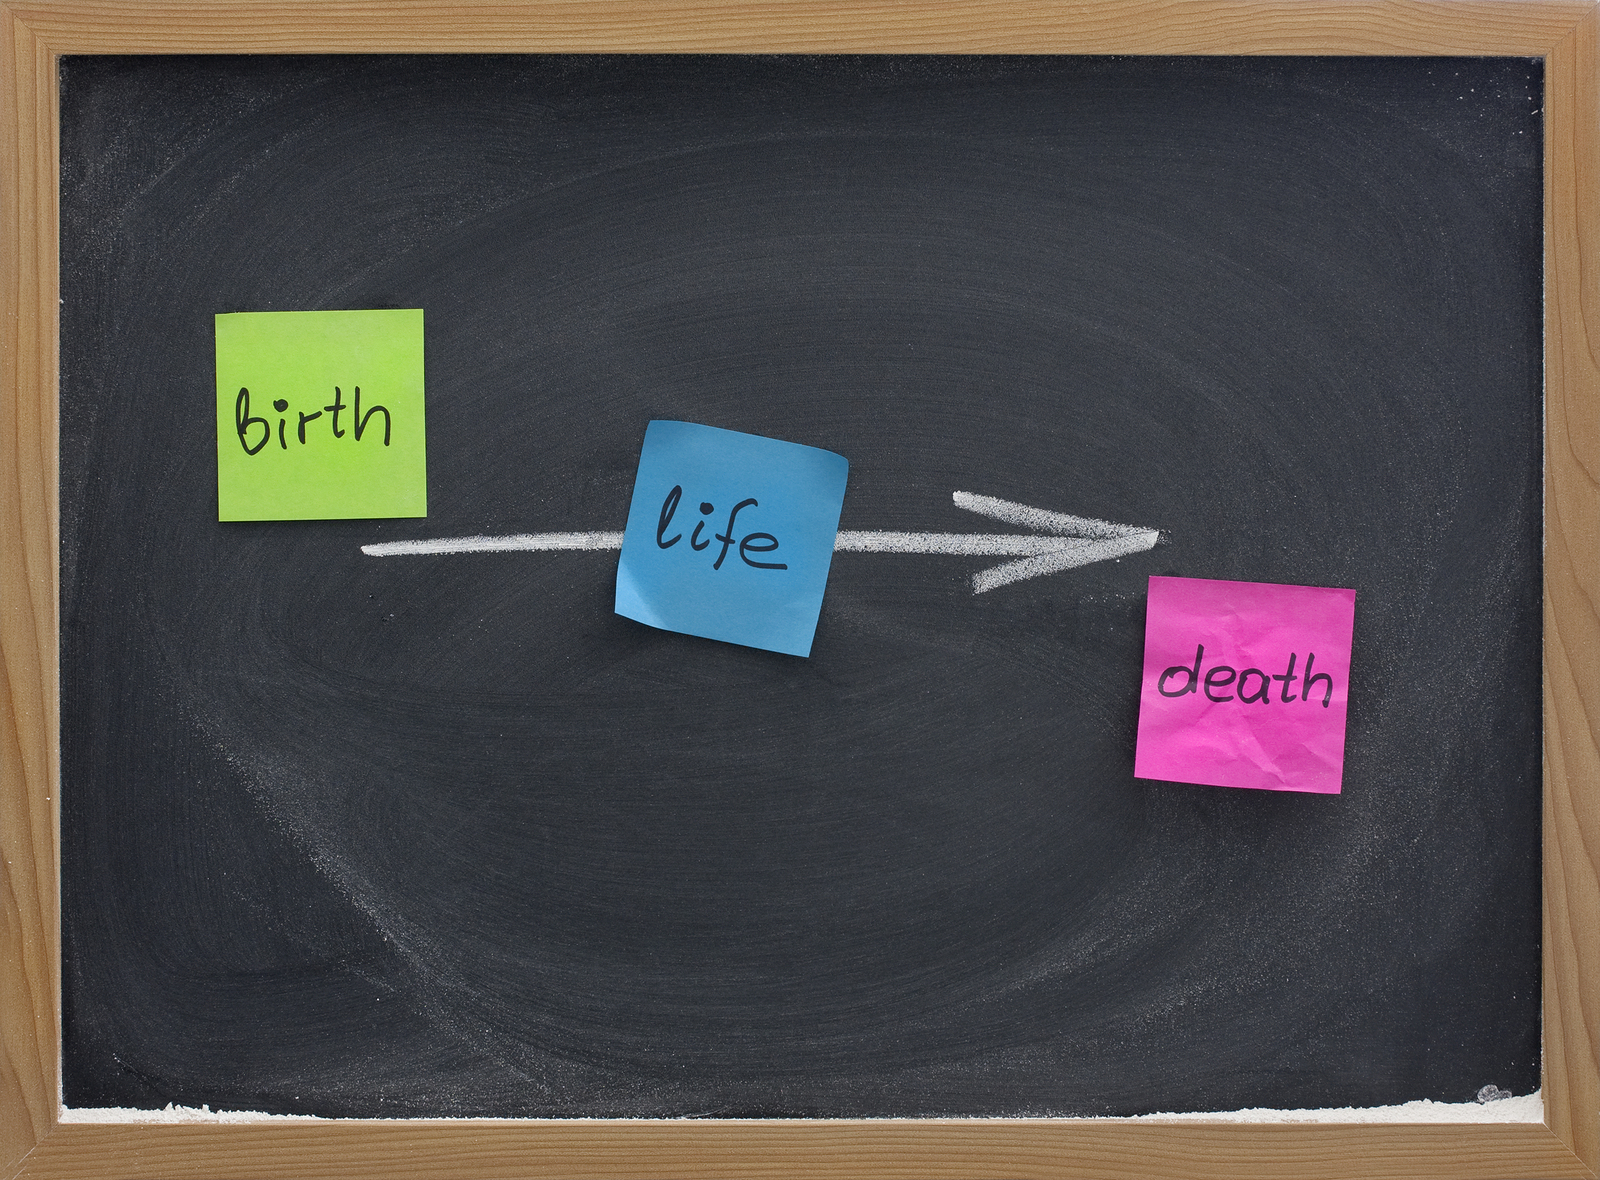 birth
life
death